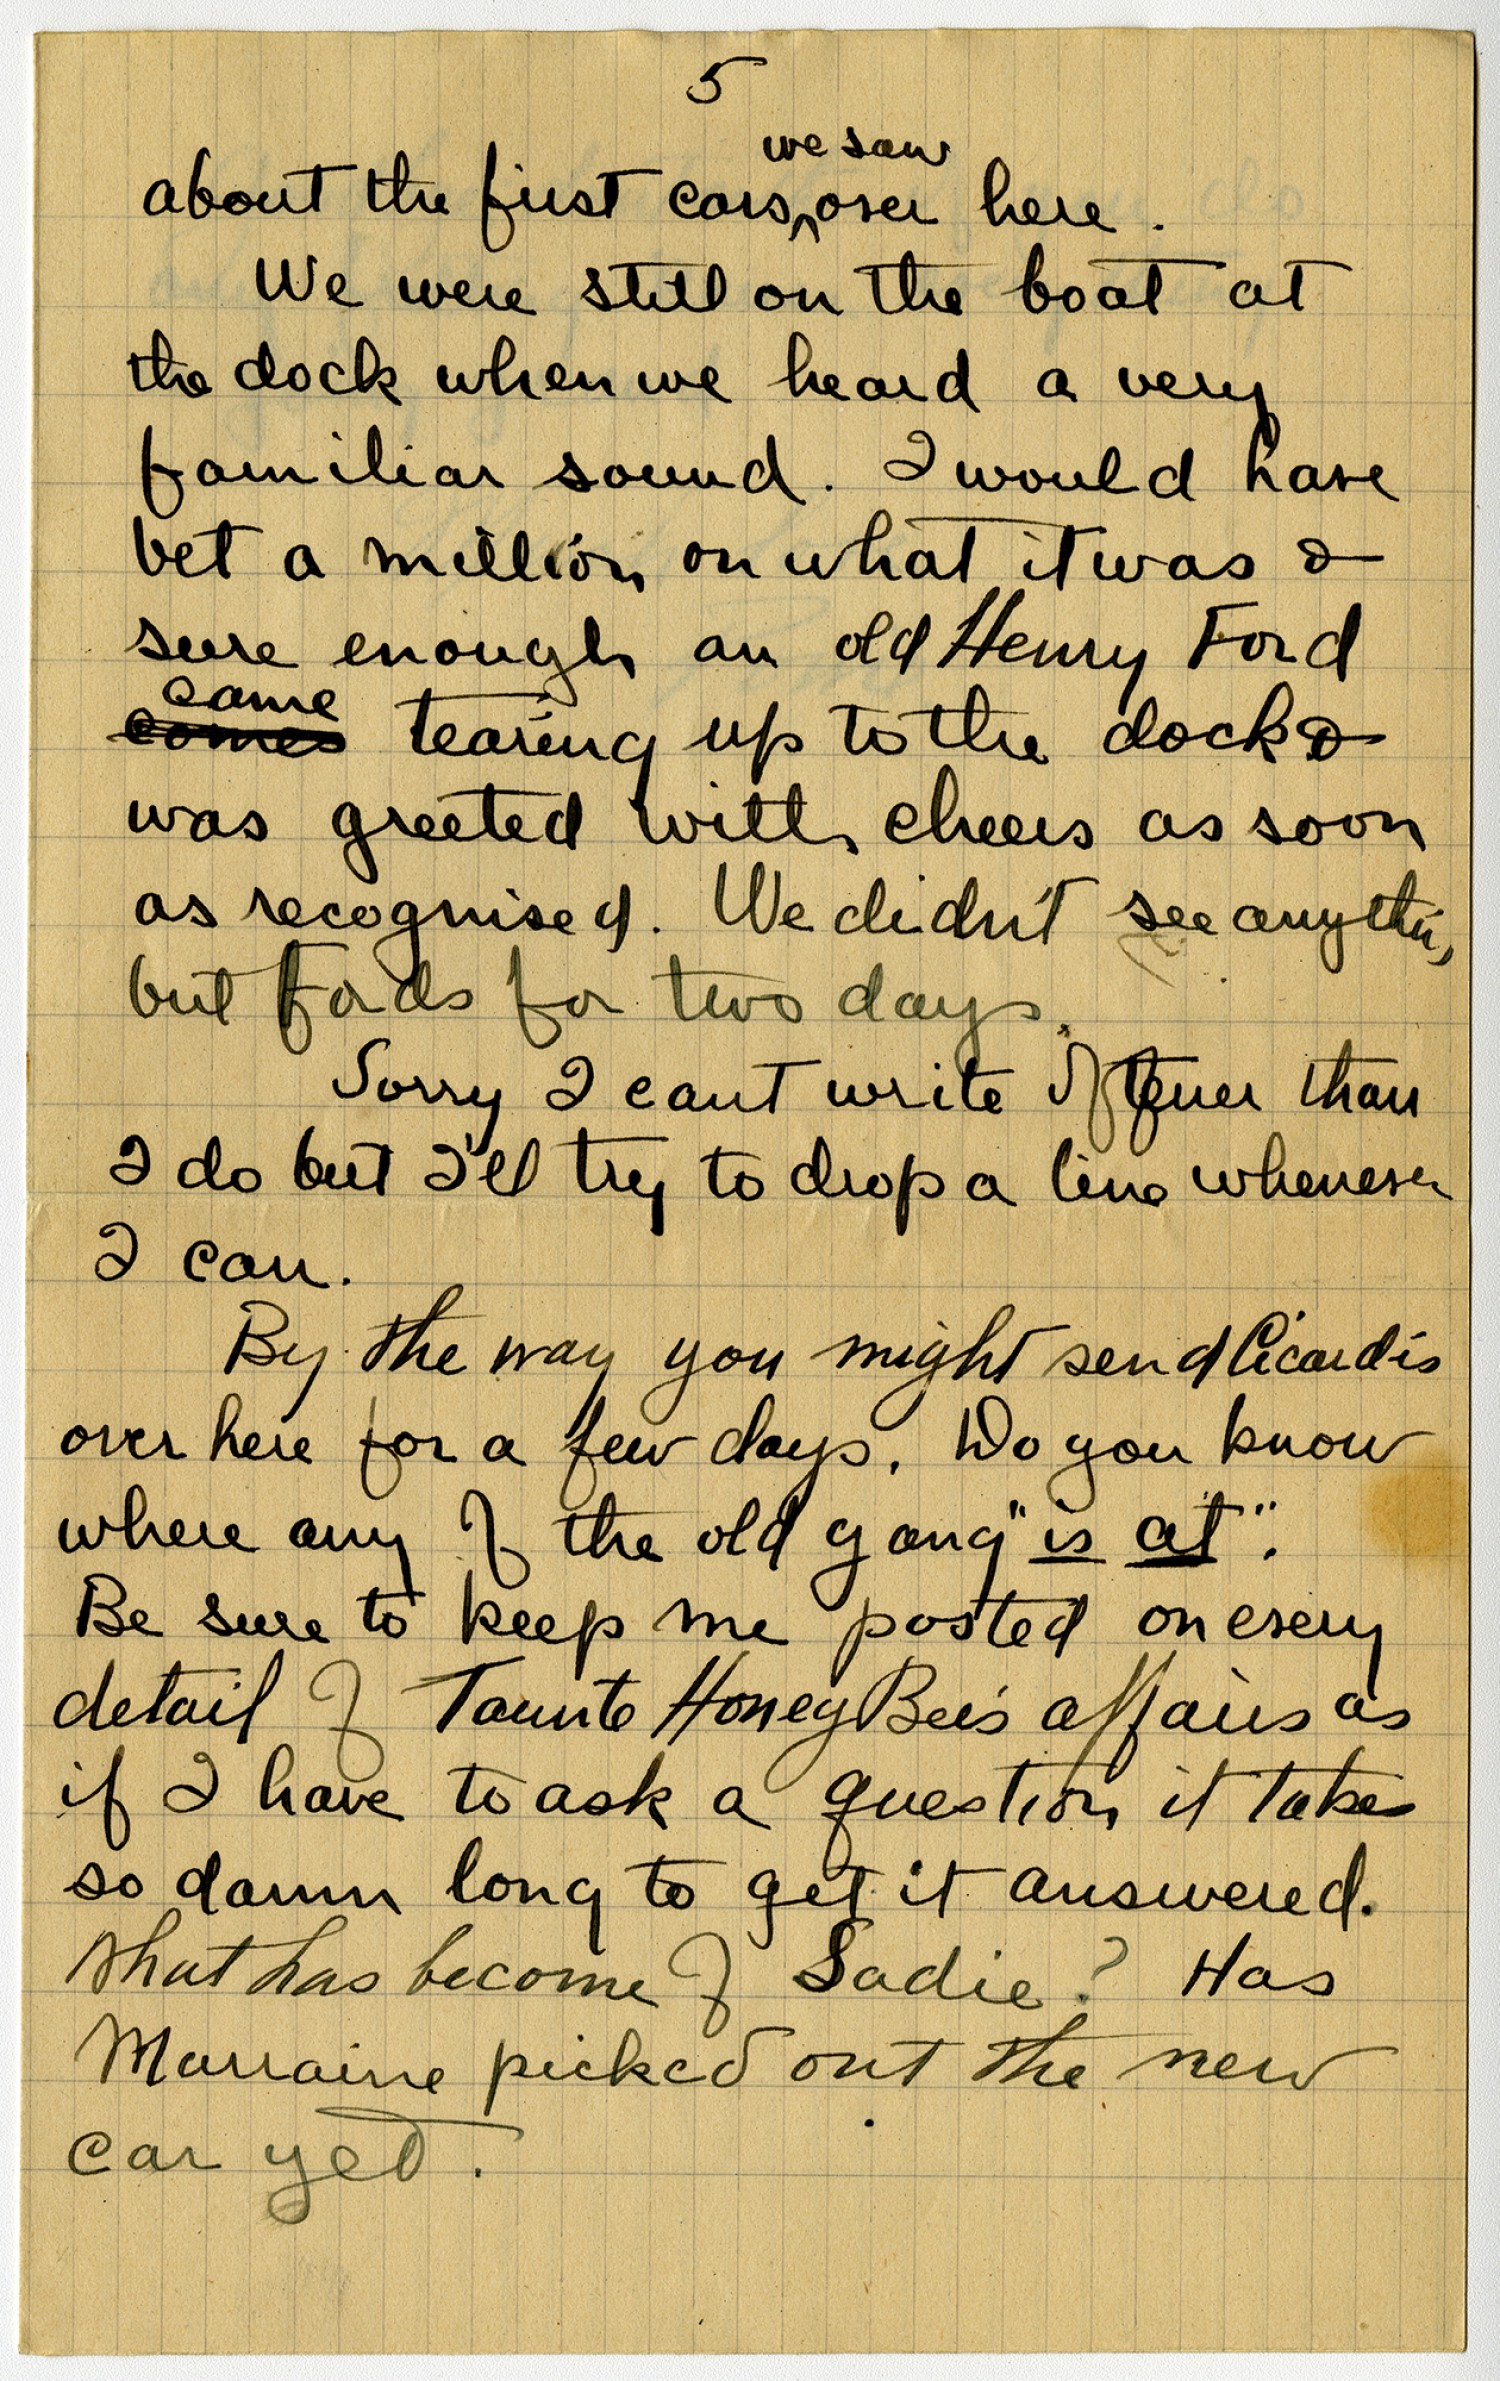 5
about the first cars, we saw over here.
We were still on the boat at
the dock when we heard a very
familiar sound. I would have
bet a million on what it was &
sure enough an old Henry Ford
comes came tearing up to the dock &
was greeted with cheers as soon
as recognised. We didn't see anything
but Fords for two days.
Sorry I cant write oftener than
I do but I'll try to drop a line whenever
I can.
By the way you might send
over here for a few days. Do you know
where any of the old gang "is at".
Be sure to keep me posted on every
detail of Honey Bee's affairs as
if I have to ask a question it takes
so damn long to get it answered.
What has become of Sadie? Has
Marraine picked out the new
car yet.